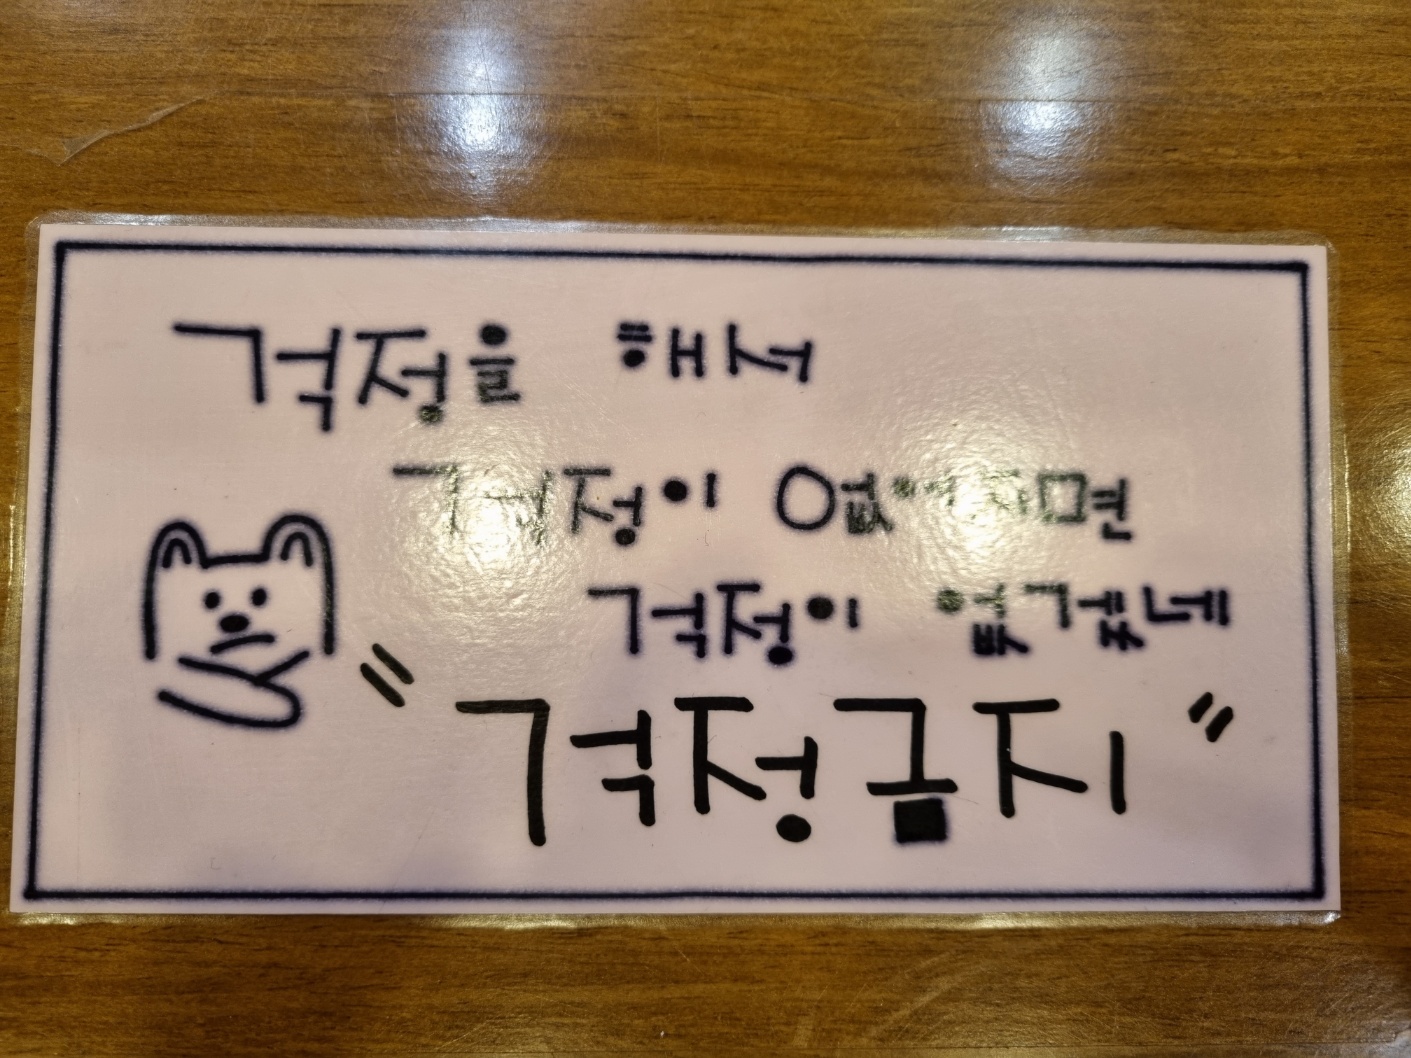 걱정을 해서
걱정이 없어지면
걱정이 없겠네
"걱정금지"